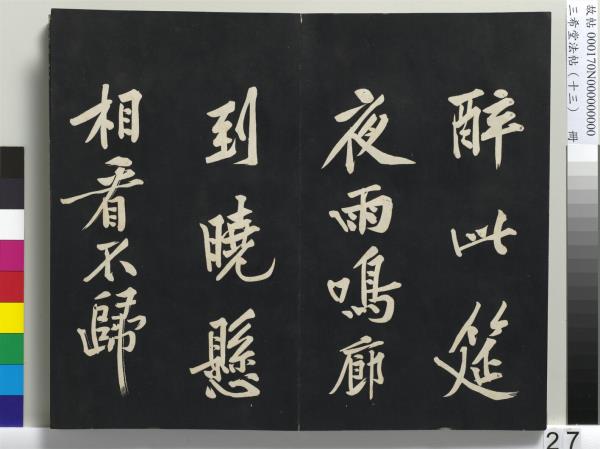 醉此筵
夜雨鳴廊
到曉懸
相看不歸
故帖 000170N000000000
三希堂法帖（十三） 冊
27